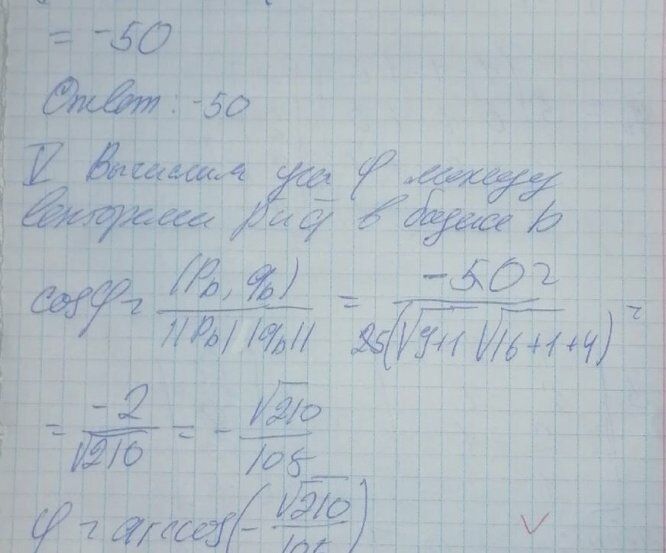 = -50
Ответ: -50
V Вычислим угол φ между
векторами p и q в базисе b
cosφ = (P_b, q_b) / ||P_b|| ||q_b|| = -50 / 25(√9+1 √16+1+4) =
= -2 / √210 = - √210 / 105
φ = arccos(- √210 / 105)